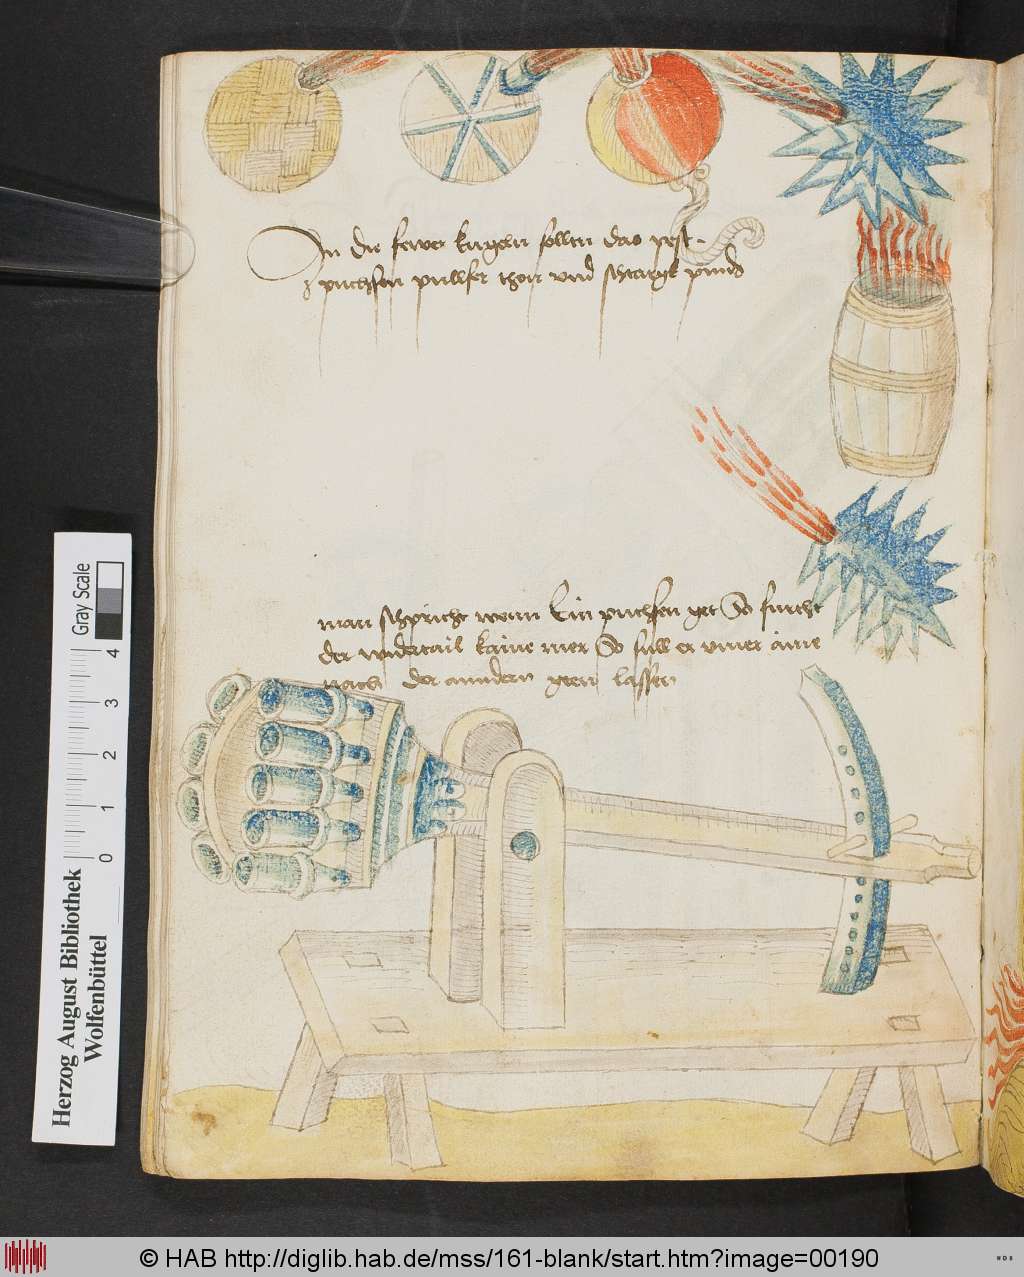 In die fewer kugeln sollen das pest
puchsen pullfer thon und starge pund
man schpricht wenn Ein puchsen get So furcht
der widertail kaine mer So sull er vmer aine
nach der anndern geen lassen
Gray Scale
4
3
2
1
0
Herzog August Bibliothek
Wolfenbüttel
© HAB http://diglib.hab.de/mss/161-blank/start.htm?image=00190